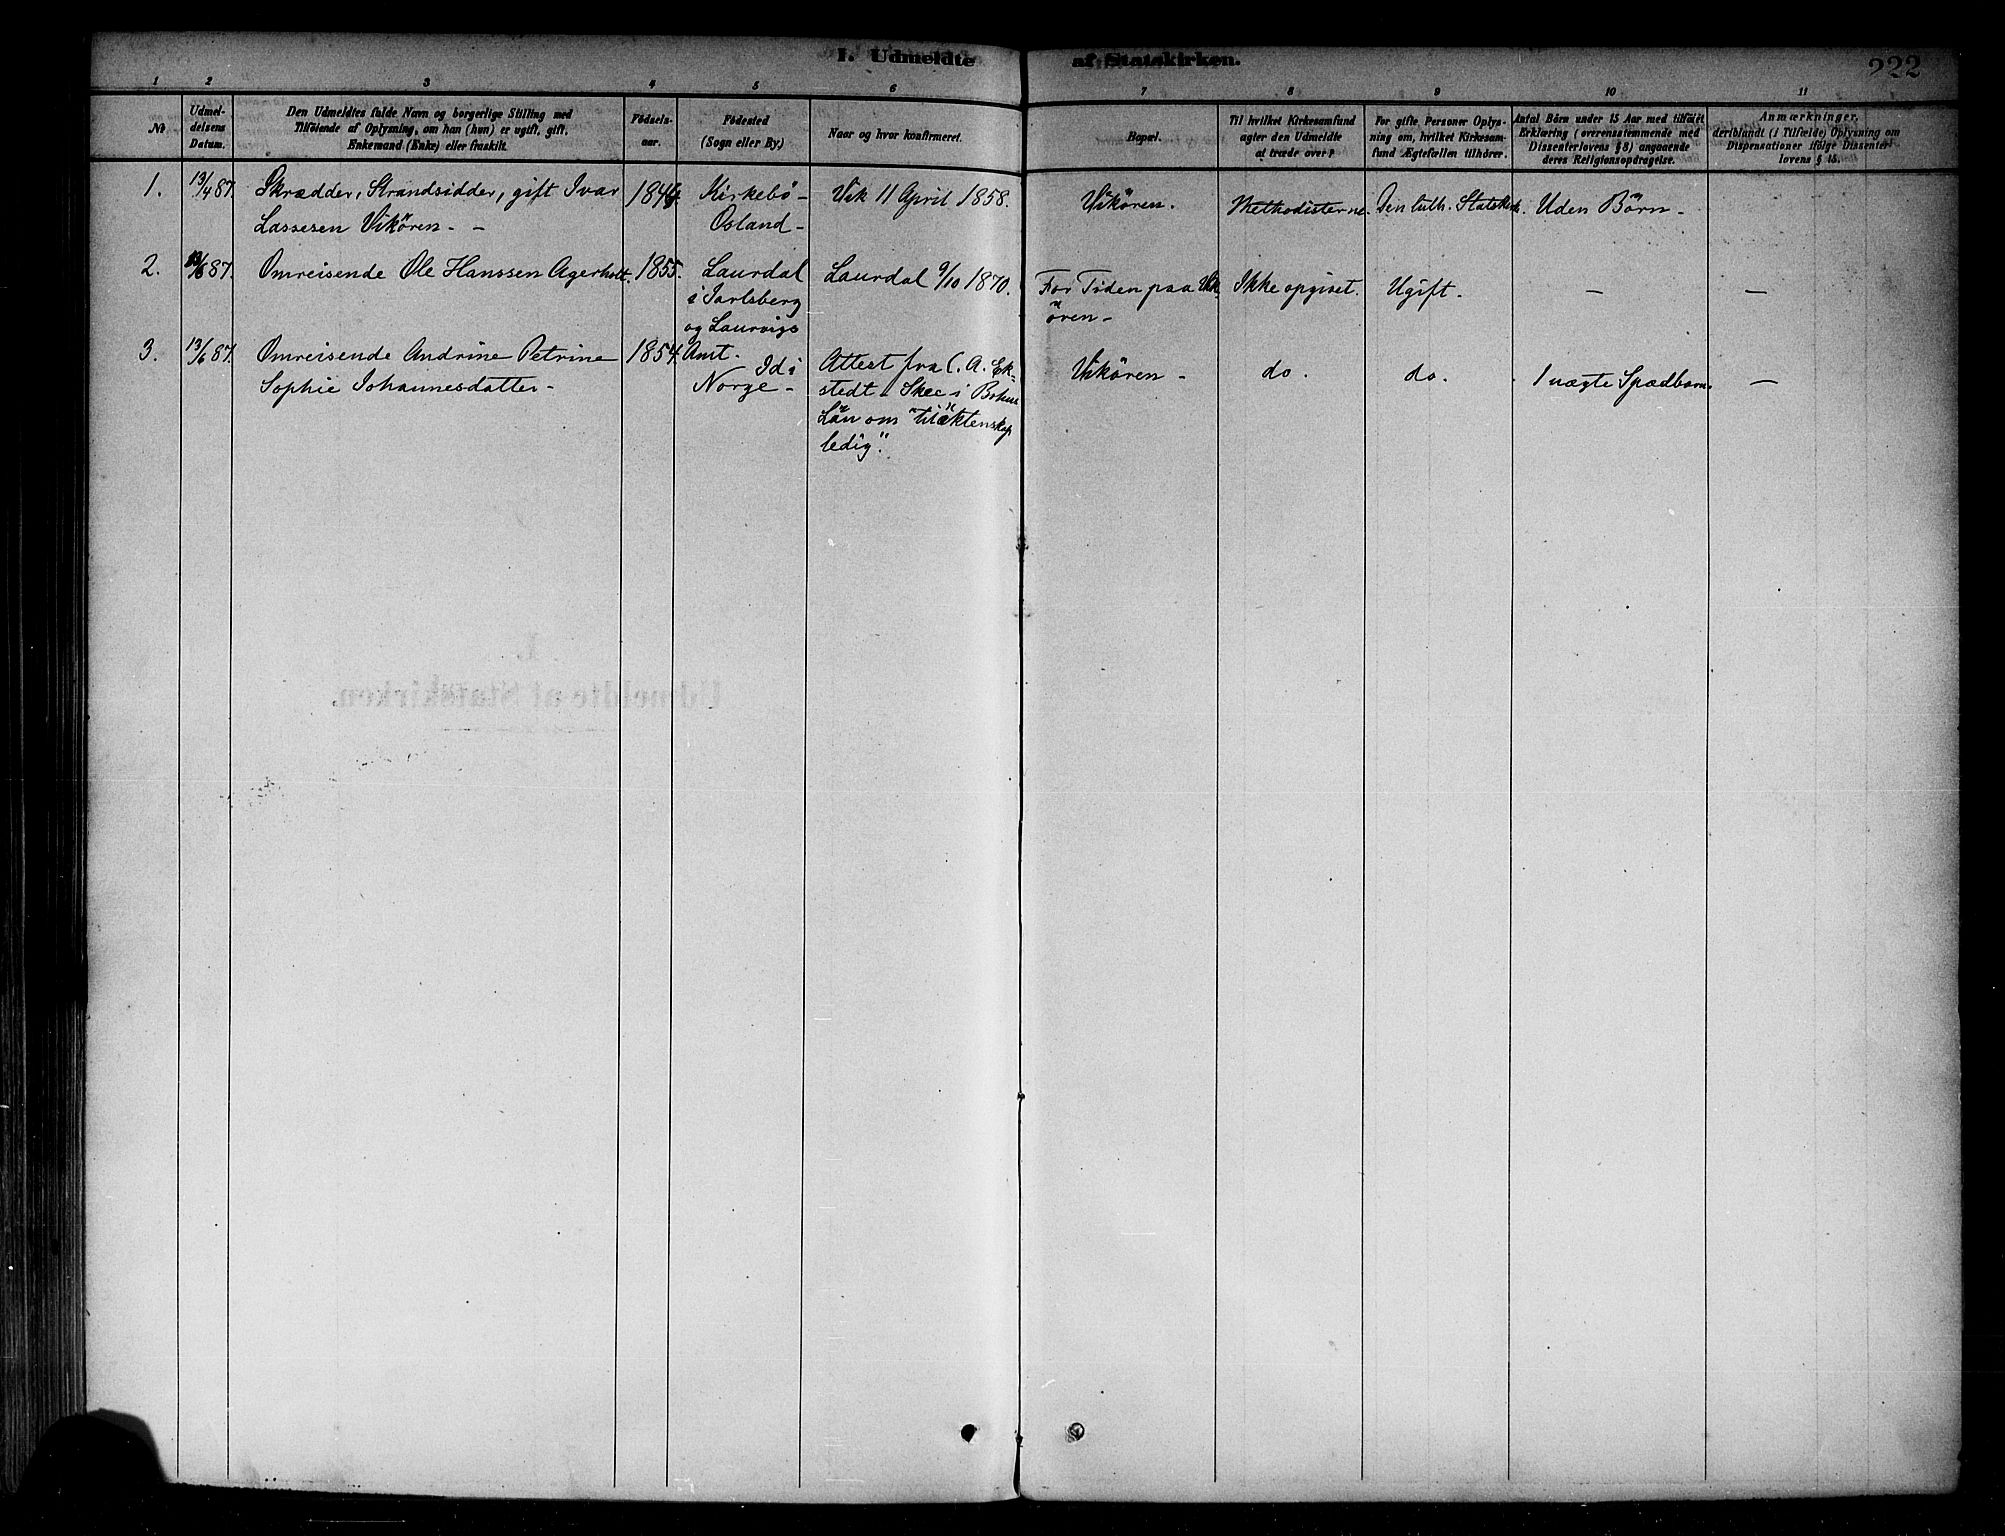 I. Udmeldte af Statskirken.
222
1 2 3 4 5 6 7 8 9 10 11
No
Udmel-
delsens
Datum.
Den Udmeldtes fulde Navn og borgerlige Stilling med
Tilföiende af Oplysning, om han (hun) er ugift, gift,
Enkemand (Enke) eller fraskilt.
Födsels-
aar.
Födested
(Sogn eller By.)
Naar og hvor konfirmeret.
Bopæl.
Til hvilket Kirkesamfund
agter den Udmeldte
at træde over?
For gifte Personer Oplys-
ning om, hvilket Kirkesam-
fund Ægtefællen tilhörer.
Antal Börn under 15 Aar med tilföiet
Erklæring (overensstemmende med
Dissenterlovens § 8) angaaende
deres Religionsopdragelse.
Anmærkninger,
deriblandt (i Tilfælde) Oplysning om
Dispensationer ifölge Dissenter-
lovens § 15.
1.
13/4 87.
Skrædder, Strandsidder, gift Ivar
Lassesen Vikören - -
Kirkebö -
Osland -
Vik 11 April 1858.
Vikören.
Methodisterne.
Den luth. Statskirk.
Uden Börn -
2.
13/6 87.
Omreisende Ole Hanssen Agerholt.
1855.
Laurdal
i Jarlsberg
og Laurvigs
Amt.
Laurdal 9/10 1870.
For Tiden paa Vik-
ören -
Ikke opgivet.
Ugift.
—
—
3.
13/6 87.
Omreisende Andrine Petrine
Sophie Johannesdatter -
1854.
Id i
Norge -
Attest fra C. A. Ek-
stedt i Skee i Bohus
Län om "till äktenskap
ledig".
Vikören -
do.
do.
1 uægte Spædbarn.
—